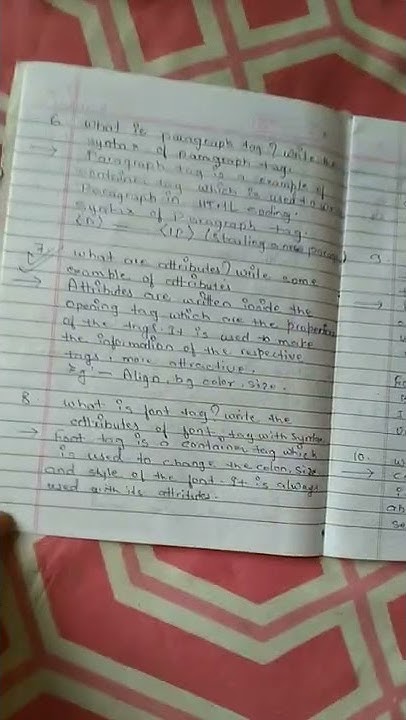 6. What is paragraph tag? Write the
syntax of paragraph tag.
→ Paragraph tag is a example of
container tag which is used to
Paragraph in HTML coding.
Syntax of Paragraph tag.
(Starting a new paragraph)
7. What are attributes? Write some
example of attributes
→ Attibutes are written inside the
opening tag which are the properties
of the tags. It is used to make
the information of the respective
tags, more attractive.
Eg - Align, bg color, size.
8. What is font tag? Write the
attributes of font tag with syntax
→ Font tag is a container tag which
is used to change the color, size
and style of the font. It is always
used with its attributes.
9
→
10.
→